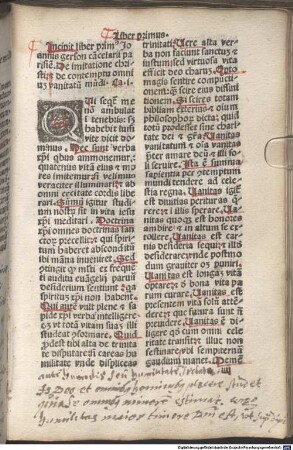 Liber primus.
Incipit liber prim⁹ Jo
annis gerson cācelarii pa
risiē. De imitatione chri
sti ⁊ de contemptu omni
uz vanitatū mūdi. Ca. i.
QUi sequit᷑ me
nō ambulat
i tenebris: sꝫ
habebit lumē
vite dicit do
minus. Hec sunt verba
xp̄i qb⁹ ammonemur:
quatenus vitā ei⁹ ⁊ mo
res imitemur si velimus
veraciter illuminari: ⁊ ab
omni cecitate cordis libe
rari. Sumū igitur studi
um nostrū sit in vita iesu
xp̄i meditari. Doctrina
xp̄i omnes doctrinas san
ctoꝝ precellit: ⁊ qui spiri
tum haberet absconditū
ibi māna inveniret. Sed
ptingit q̄ ml̄ti ex frequē
ti auditu euāgelii parvū
desiderium sentiunt: qa
spiritū xp̄i non habent.
Qui autē vult plene ⁊ sa
pide xp̄i verba intellige
opꝫ vt totā vitam suaz illi
studeat ꝯformare. Quid
ꝓdest tibi alta de trinita
te disputare si careas hu
militate vnde displiceas
trinitati: Uere alta ver
ba non faciunt sanctus ⁊
iustum sed virtuosa vita
efficit deo charuz. Opto
magis sentire cōpuncti
onem qz scire eius diffini
tionem. Si scires totam
bibliam exterius ⁊ oīum
philosophoꝝ dicta: quid
totū ꝓdesset sine charita
te dei ⁊ gr̄a? Uanitas
vanitatum ⁊ oīa vanita
pter amare deuꝫ ⁊ illi so
li seruire. Ista ē summa
sapientia per ꝯtemptum
mundi tendere ad cele
stia regna. Uanitas igit̄
est diuitias perituras q̄
rere: ⁊ in illis sperare. Ua
nitas quoqꝫ est honores
ambire: ⁊ in altum se ex
tollere. Uanitas est car
nis desideria sequi: ⁊ illd
desiderare: vnde postmo
dum grauiter opꝫ puniri.
Uanitas est longā vitā
optare: ⁊ d̄ bona vita pa
rum curare. Uanitas est
presentem vitā solū attē
dere: ⁊ que futura sunt nō
preuidere. Uanitas ē di
ligere qd̄ cum omni cele
ritate transit: ⁊ illuc non
festinare: vbi sempiternū
gaudium manet. Meme